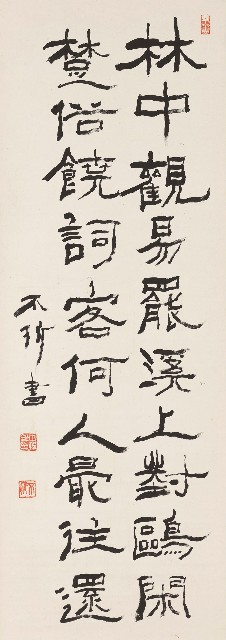 林中觀易罷溪上對鷗閑
楚俗饒詞客何人最往還
不珍書